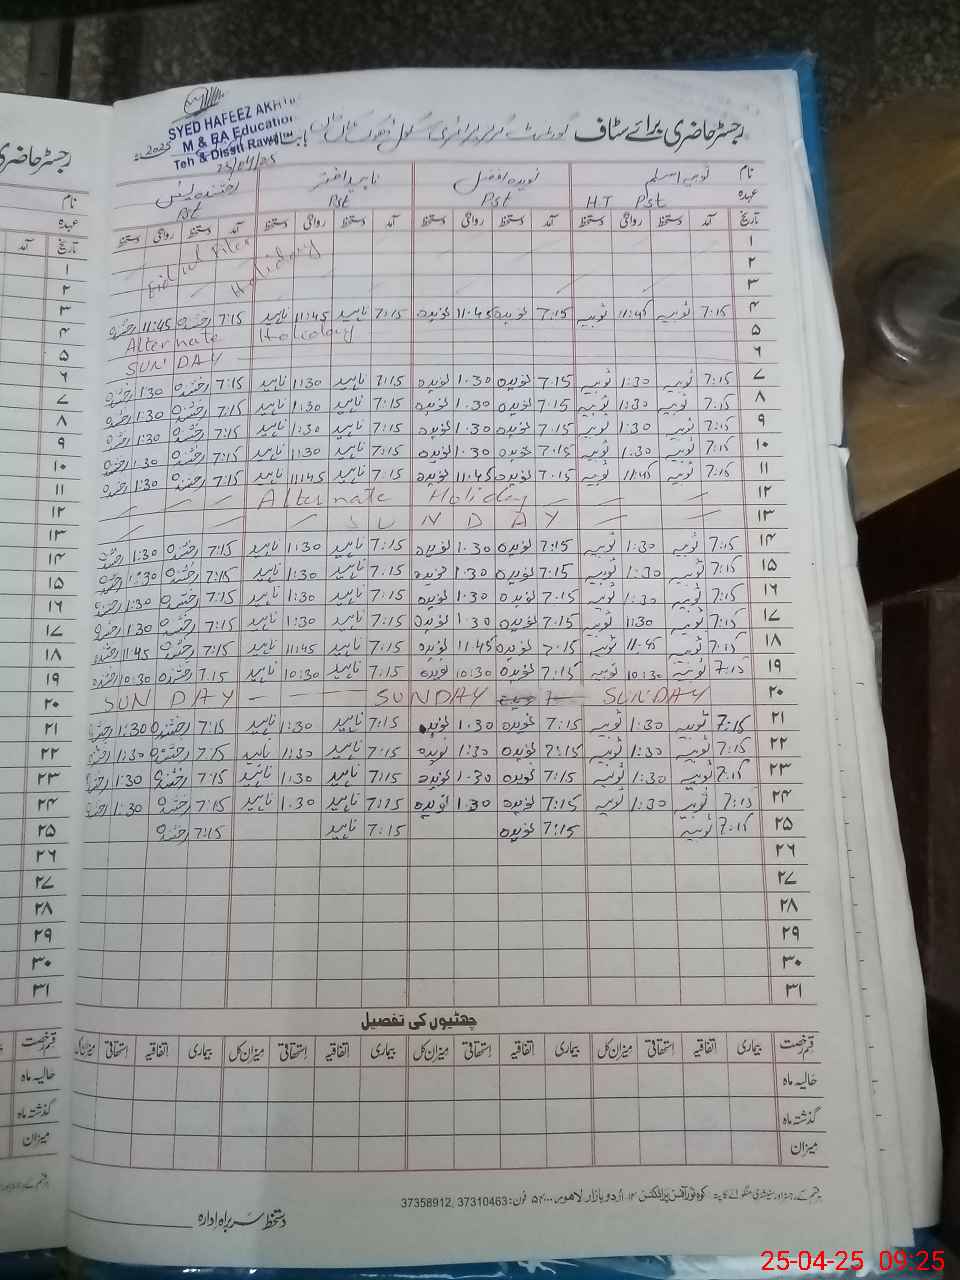 SYED HAFEEZ AKHTAR
M & EA Education
Teh & Distt Rawal
25/04/25
رجسٹر حاضری برائے سٹاف گورنمنٹ گرلز پرائمری سکول بابت ماہ 2025
نام ثوبیہ اسلم نویدہ افضل ناہید اختر رخشندہ
عہدہ H.T Pst Pst Pst Pst
تاریخ آمد دستخط روانگی دستخط آمد دستخط روانگی دستخط آمد دستخط روانگی دستخط آمد دستخط روانگی دستخط
۱ Eid ul Fiter
۲ Holidays
۳
۴ 7:15 ثوبیہ 11:45 ثوبیہ 7:15 نویدہ 11:45 نویدہ 7:15 ناہید 11:45 ناہید 7:15 رخشندہ 11:45 رخشندہ
۵ Alternate Holiday
۶ SUNDAY
۷ 7:15 ثوبیہ 1:30 ثوبیہ 7:15 نویدہ 1:30 نویدہ 7:15 ناہید 1:30 ناہید 7:15 رخشندہ 1:30 رخشندہ
۸ 7:15 ثوبیہ 1:30 ثوبیہ 7:15 نویدہ 1:30 نویدہ 7:15 ناہید 1:30 ناہید 7:15 رخشندہ 1:30 رخشندہ
۹ 7:15 ثوبیہ 1:30 ثوبیہ 7:15 نویدہ 1:30 نویدہ 7:15 ناہید 1:30 ناہید 7:15 رخشندہ 1:30 رخشندہ
۱۰ 7:15 ثوبیہ 1:30 ثوبیہ 7:15 نویدہ 1:30 نویدہ 7:15 ناہید 11:30 ناہید 7:15 رخشندہ 1:30 رخشندہ
۱۱ 7:15 ثوبیہ 11:45 ثوبیہ 7:15 نویدہ 11:45 نویدہ 7:15 ناہید 11:45 ناہید 7:15 رخشندہ 1:30 رخشندہ
۱۲ Alternate Holiday
۱۳ SUNDAY
۱۴ 7:15 ثوبیہ 1:30 ثوبیہ 7:15 نویدہ 1:30 نویدہ 7:15 ناہید 1:30 ناہید 7:15 رخشندہ 1:30 رخشندہ
۱۵ 7:15 ثوبیہ 1:30 ثوبیہ 7:15 نویدہ 1:30 نویدہ 7:15 ناہید 1:30 ناہید 7:15 رخشندہ 1:30 رخشندہ
۱۶ 7:15 ثوبیہ 1:30 ثوبیہ 7:15 نویدہ 1:30 نویدہ 7:15 ناہید 1:30 ناہید 7:15 رخشندہ 1:30 رخشندہ
۱۷ 7:15 ثوبیہ 11:30 ثوبیہ 7:15 نویدہ 1:30 نویدہ 7:15 ناہید 1:30 ناہید 7:15 رخشندہ 1:30 رخشندہ
۱۸ 7:15 ثوبیہ 11:45 ثوبیہ 7:15 نویدہ 11:45 نویدہ 7:15 ناہید 11:45 ناہید 7:15 رخشندہ 11:45 رخشندہ
۱۹ 7:15 ثوبیہ 10:30 ثوبیہ 7:15 نویدہ 10:30 نویدہ 7:15 ناہید 10:30 ناہید 7:15 رخشندہ 10:30 رخشندہ
۲۰ SUN DAY SUNDAY SUNDAY
۲۱ 7:15 ثوبیہ 1:30 ثوبیہ 7:15 نویدہ 1:30 نویدہ 7:15 ناہید 1:30 ناہید 7:15 رخشندہ 1:30 رخشندہ
۲۲ 7:15 ثوبیہ 1:30 ثوبیہ 7:15 نویدہ 1:30 نویدہ 7:15 ناہید 1:30 ناہید 7:15 رخشندہ 1:30 رخشندہ
۲۳ 7:15 ثوبیہ 1:30 ثوبیہ 7:15 نویدہ 1:30 نویدہ 7:15 ناہید 1:30 ناہید 7:15 رخشندہ 1:30 رخشندہ
۲۴ 7:15 ثوبیہ 1:30 ثوبیہ 7:15 نویدہ 1:30 نویدہ 7:15 ناہید 1:30 ناہید 7:15 رخشندہ 1:30 رخشندہ
۲۵ 7:15 ثوبیہ 7:15 نویدہ 7:15 ناہید 7:15 رخشندہ
۲۶
۲۷
۲۸
۲۹
۳۰
۳۱
چھٹیوں کی تفصیل
قسم رخصت بیماری اتفاقیہ استحقاقی میزان کل بیماری اتفاقیہ استحقاقی میزان کل بیماری اتفاقیہ استحقاقی میزان کل بیماری اتفاقیہ استحقاقی میزان کل
حالیہ ماہ
گذشتہ ماہ
میزان
ہر قسم کے رجسٹر اور سٹیشنری منگوانے کا پتہ: کوہ نور آفس پرنٹنگس ۱۴- اُردو بازار لاهور فون: 37358912, 37310463
دستخط سربراہ ادارہ
25-04-25 09:25